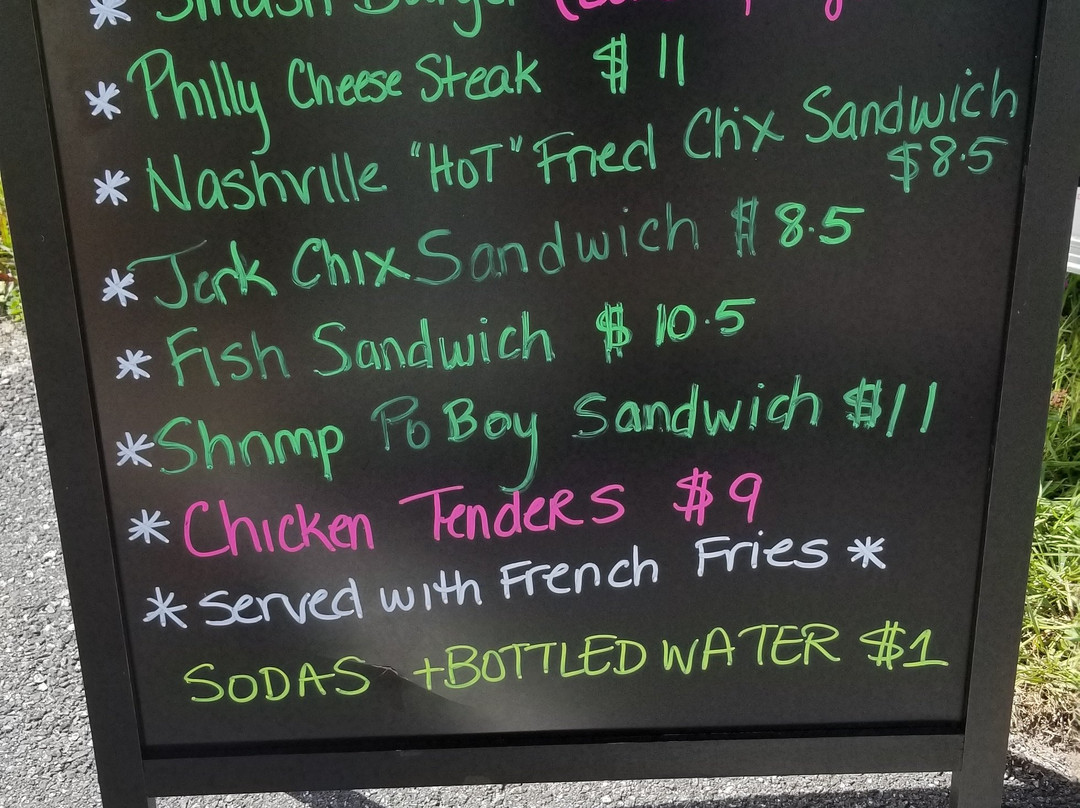 * Smash Burger
* Philly Cheese Steak $11
* Nashville "HOT" Fried Chix Sandwich
$8.5
* Jerk Chix Sandwich $8.5
* Fish Sandwich $10.5
* Shrimp Po Boy Sandwich $11
* Chicken Tenders $9
* Served with French Fries *
SODAS + BOTTLED WATER $1